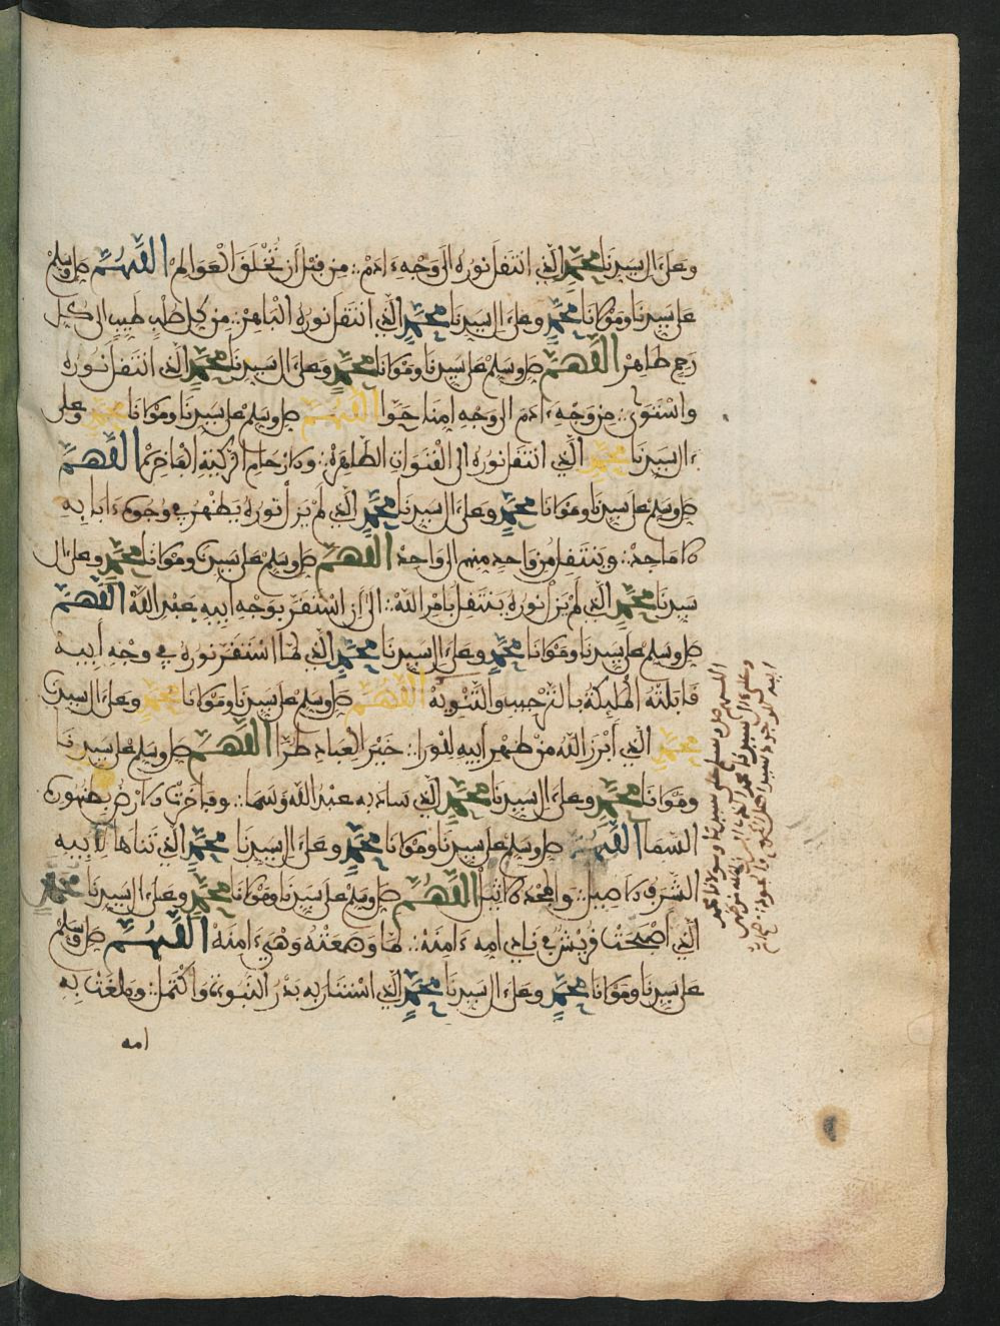 وعلى ءال سيدنا محمد الذي انتقل نوره الى وجه ءادم من قبل أن تخلق العوالم اللهم صل وسلم
على سيدنا ومولانا محمد وعلى ءال سيدنا محمد الذي انتقل نوره الباهر من كل صلب طيب الى كل
رحم طاهر اللهم صل وسلم على سيدنا ومولانا محمد وعلى ءال سيدنا محمد الذي انتقل نوره
واستوى من وجه ءادم الى وجه امنا حوا اللهم صل وسلم على سيدنا ومولانا محمد وعلى
ءال سيدنا محمد الذي انتقل نوره الى القنوات الطاهره والارحام الزكية الفاخره اللهم
صل وسلم على سيدنا ومولانا محمد وعلى ءال سيدنا محمد الذي لم يزل نوره يظهر في وجوه ءابايه
الاماجد وينتقل من واحد منهم الى واحد اللهم صل وسلم على سيدنا ومولانا محمد وعلى ءال
سيدنا محمد الذي لم يزل نوره ينتقل بامر الله الى أن استقر بوجه ابيه عبد الله اللهم
صل وسلم على سيدنا ومولانا محمد وعلى ءال سيدنا محمد الذي لما استقر نوره في وجه أبيه
قابلته المليكة بالترحيب والتنويه اللهم صل وسلم على سيدنا ومولانا محمد وعلى ءال سيدنا
محمد الذي أبرز الله من ظهر أبيه لنورا خير العباد طرا اللهم صل وسلم على سيدنا
ومولانا محمد وعلى ءال سيدنا محمد الذي ساد به عبد الله وسما وفاخرت الارض
السما اللهم صل وسلم على سيدنا ومولانا محمد وعلى ءال سيدنا محمد الذي تناها لأبيه
الشرف الاصيل والمجد الاثيل اللهم صل وسلم على سيدنا ومولانا محمد وعلى ءال سيدنا محمد
الذي أصبحت قريش في نادي امه ءامنه لما وضعته وهي ءامنة اللهم صل وسلم
على سيدنا ومولانا محمد وعلى ءال سيدنا محمد الذي استنار به بدر النبوة واكتمل وبلغت به
امه
اللهم صل وسلم على سيدنا ومولانا محمد
وعلى ءال سيدنا محمد الذي